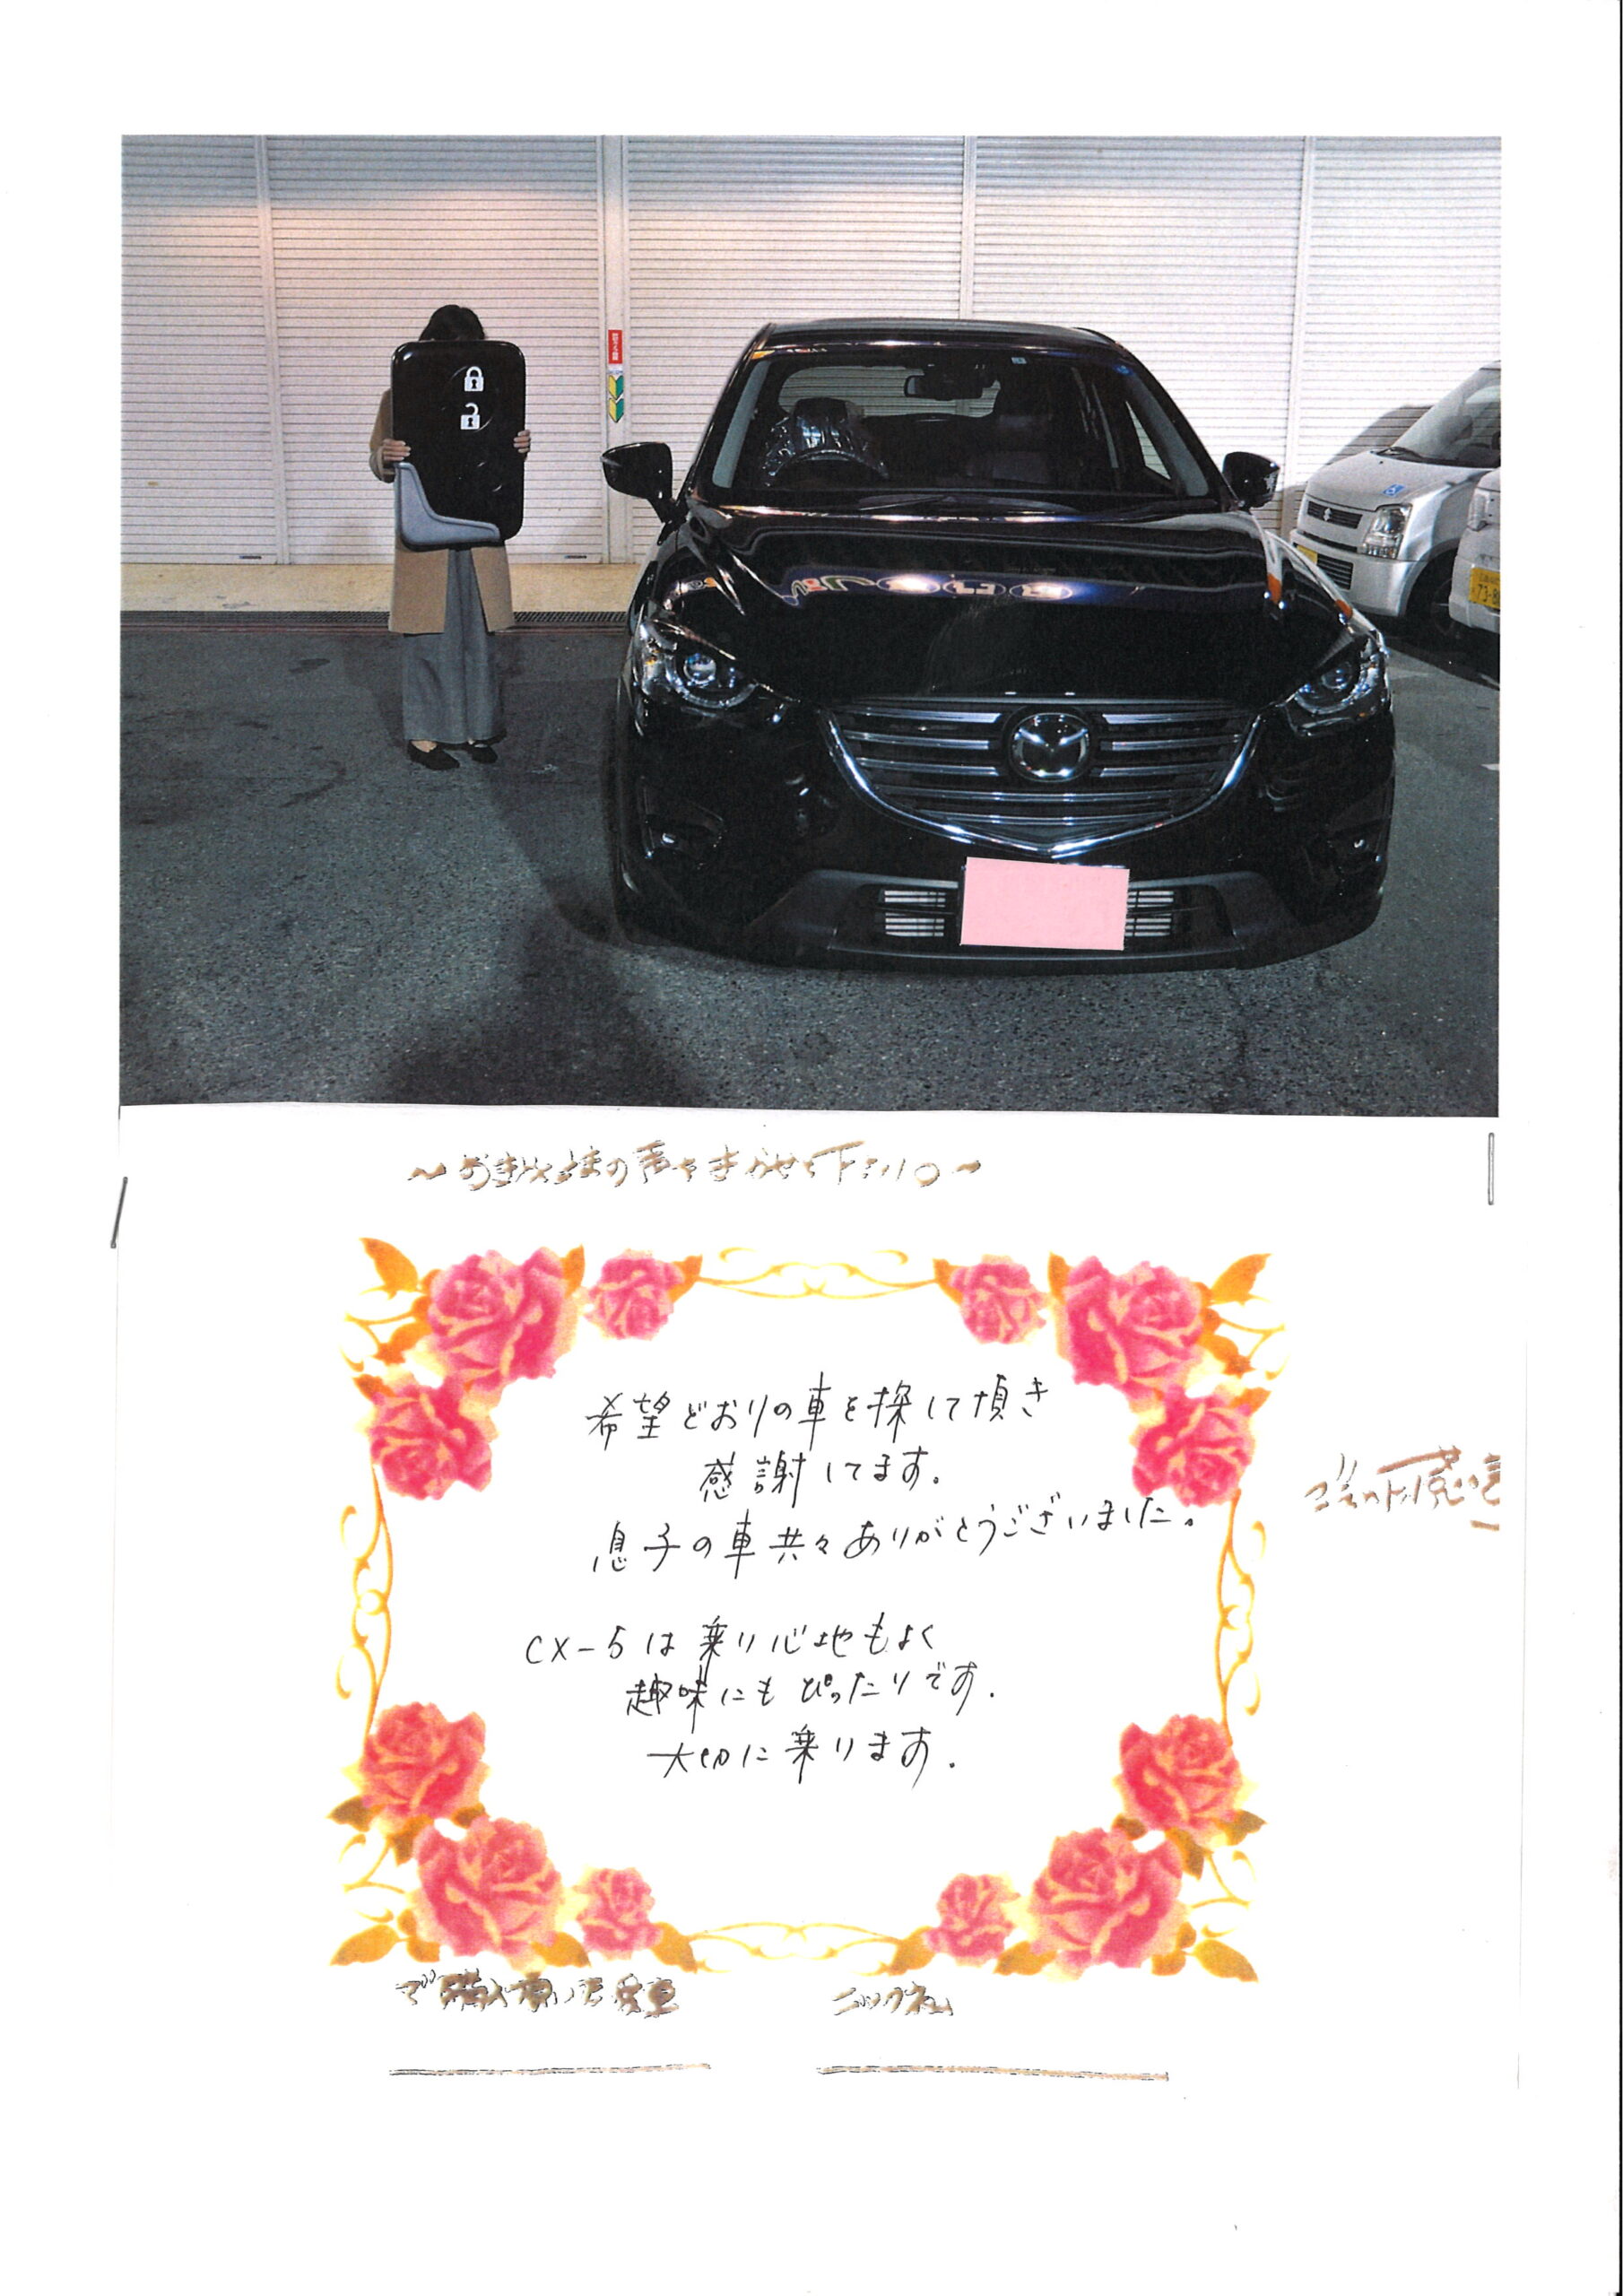 ～お客さまの声をきかせて下さい。～
希望どおりの車を探して頂き
感謝してます。
息子の車共々ありがとうございました。
CX-5は乗り心地もよく
趣味にもぴったりです.
大切に乗ります.
ご購入頂いた愛車
ニックネーム